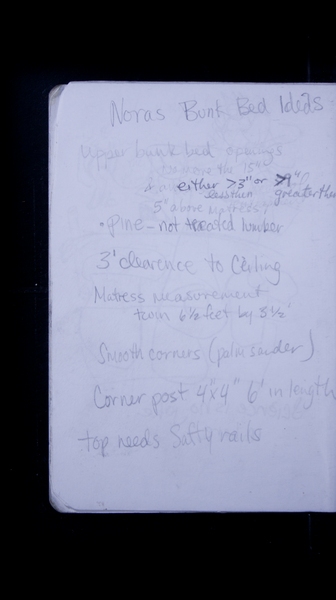 Noras Bunk Bed Ideas
Upper bunk bed openings
either >3" or >9"
less then greater then
5" above matress
• Pine - not treated lumber
3' clearence to Ceiling
Matress measurement
twin 6 1/2 feet by 3 1/2'
Smooth corners (palm sander)
Corner post 4"x4" 6' in length
top needs Safty rails